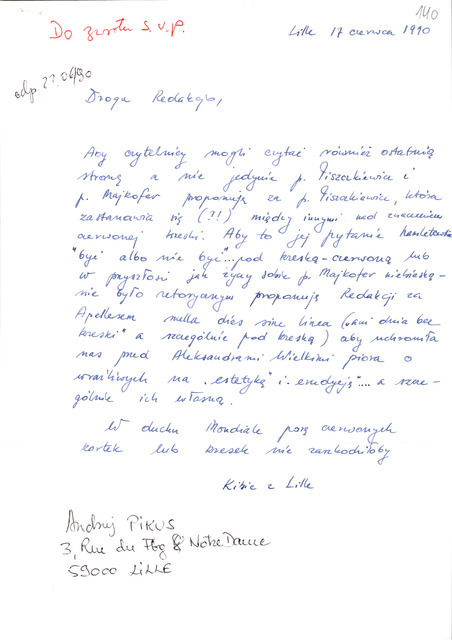 140
Do zwrotu s.v.p.
Lille 17 czerwca 1990
odp. 22.06/90
Droga Redakcjo,
Aby czytelnicy mogli czytać również ostatnią
stronę a nie jedynie p. Piszakiewicz i
p. Majkofer proponuję za p. Piszakiewicz, która
zastanawia się (?!) między innymi nad znaczeniem
czerwonej kreski. Aby to jej pytanie hamletowskie
"być albo nie być"... pod kreską - czerwoną lub
w przyszłości jak życzy sobie p. Majkofer niebieską -
nie było retorycznym proponuję Redakcji za
Apellesem nulla dies sine linea (ani dnia bez
kreski" a szczególnie pod kreską) aby uchroniła
nas przed Aleksandrami Wielkimi pióra o
wrażliwych na "estetykę" i "erudycję"... a szcze-
gólnie ich własną.
W duchu Mondiale parę czerwonych
kartek lub kresek nie zaszkodziłoby
Kibic z Lille
Andrzej PIKUS
3, Rue du Fbg & Notre Dame
59000 LILLE